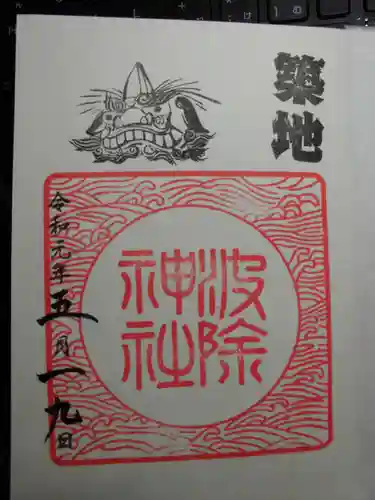 築地
波除
神社
令和元年五月一九日